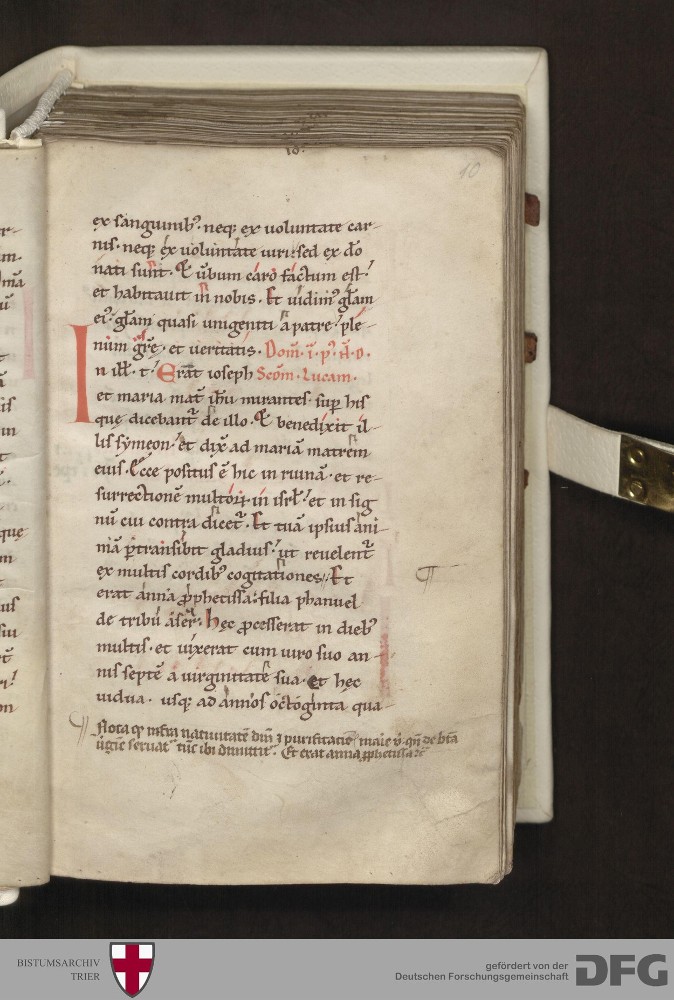 10
ex sanguinib᷒. neqꝫ ex uoluntate car-
nis. neqꝫ ex uoluntate uiri. sed ex dō
nati sunt. Et ūbum caro factum est.
et habitauit in nobis. Et uidim᷒ glām
ei᷒. glām quasi unigeniti a patre. ple-
num grē. et ueritatis. Dom̄. ī. p᷒. N̄. D.
In ill̄. t. Erat ioseph Scdm. Lucam.
et maria mat̄ ihū mirantes. sup his
que dicebant̄ de illo. Et benedixit il-
lis symeon. et dix̄ ad mariā matrem
eius. Ecce positus ē hic in ruinā. et re-
surrectionē multoꝝ in isrl̄. et in sig
nū cui contra dicet̄. Et tuā ipsius ani-
mā ꝑtransibit gladius. ut reuelent̄
ex multis cordib᷒ cogitationes. Et
erat anna ꝓphetissa. filia phanuel
de tribu aser. hęc ꝓcesserat in dieb᷒
multis. et uixerat cum uiro suo an-
nis septē a uirginitate sua. et hęc
uidua. usqꝫ ad annos octoginta qua-
Nota ꝙ infra natiuitatē dm̄ ⁊ purificatiōe marie
Et erat anna ꝓphetissa
BISTUMSARCHIV
TRIER
gefördert von der
Deutschen Forschungsgemeinschaft
DFG